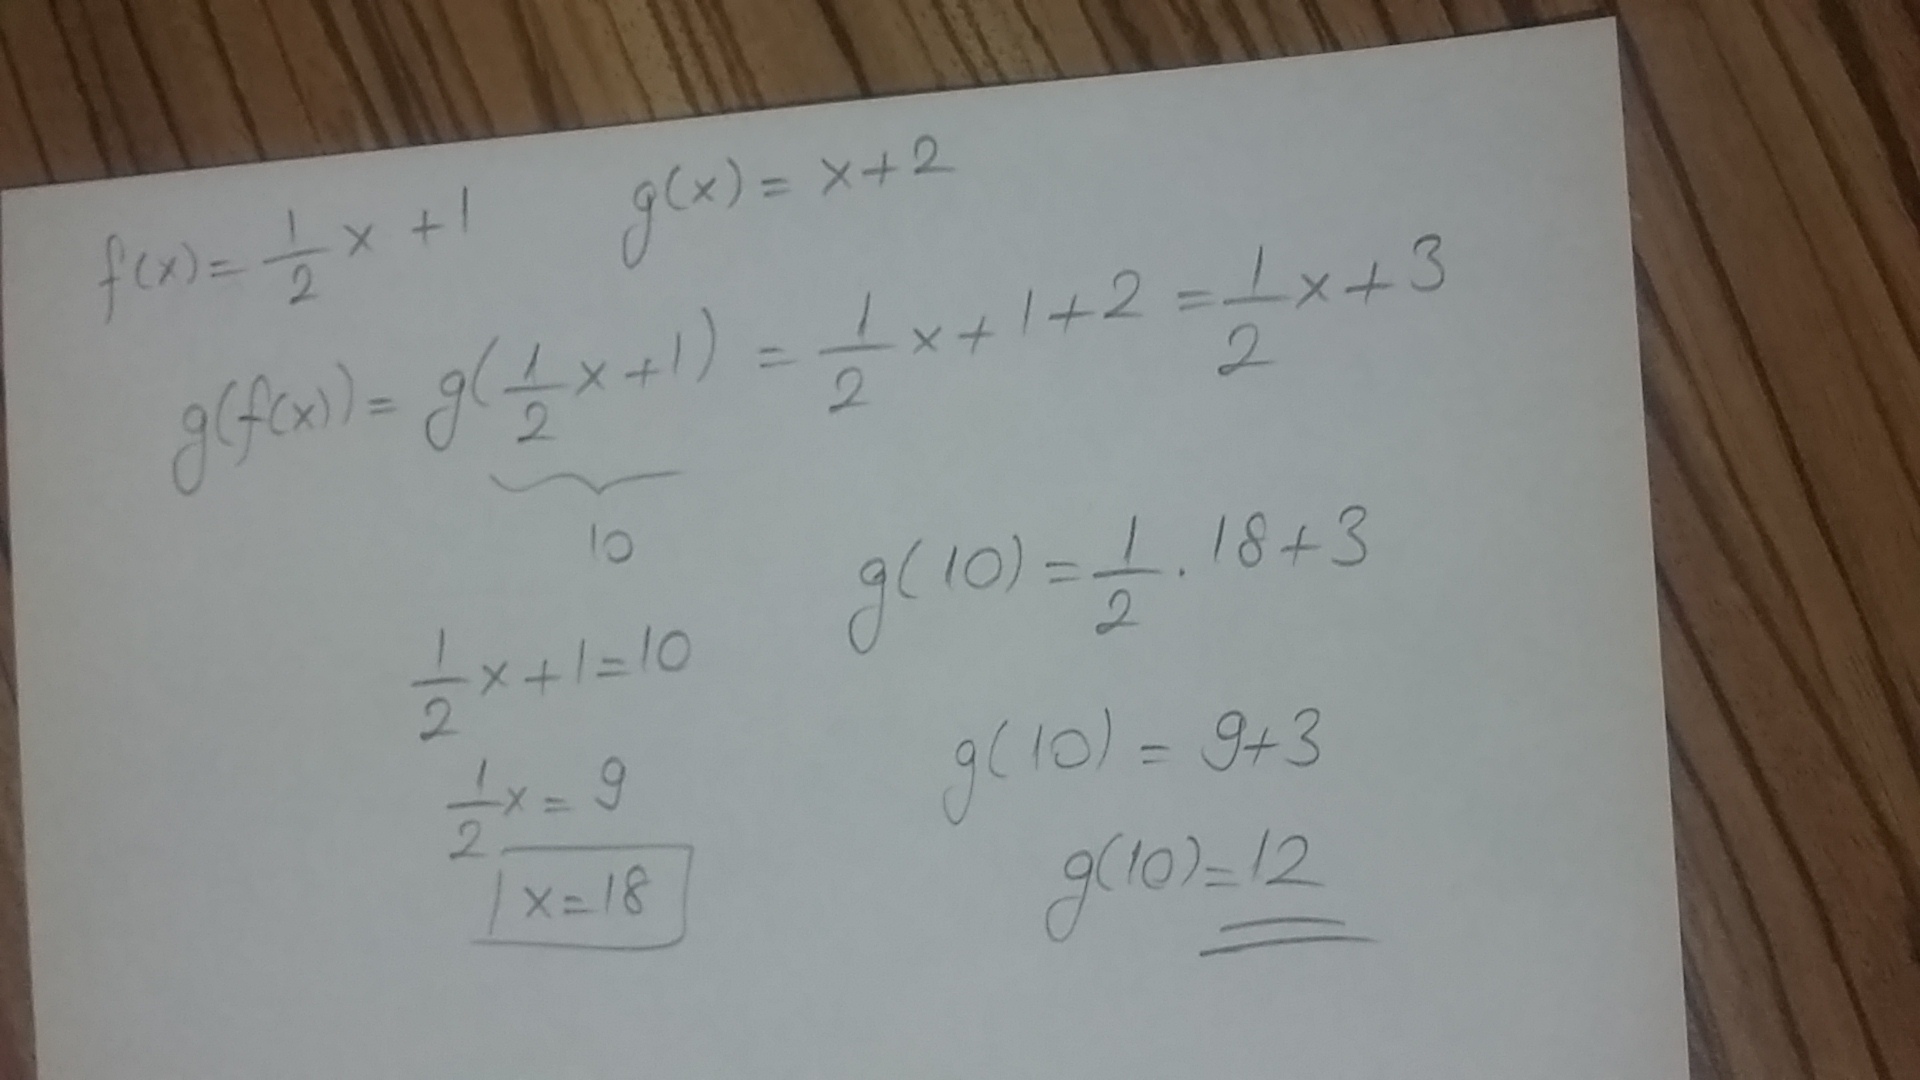 f(x) = 1/2 x + 1    g(x) = x + 2
g(f(x)) = g(1/2 x + 1) = 1/2 x + 1 + 2 = 1/2 x + 3
10
1/2 x + 1 = 10
1/2 x = 9
x = 18
g(10) = 1/2 . 18 + 3
g(10) = 9 + 3
g(10) = 12